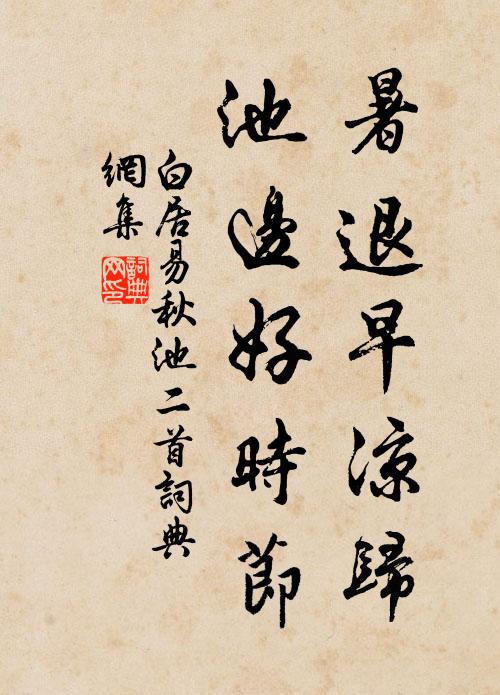 暑退早涼歸
池邊好時節
白居易秋池二首詞典
網集
詞典網印